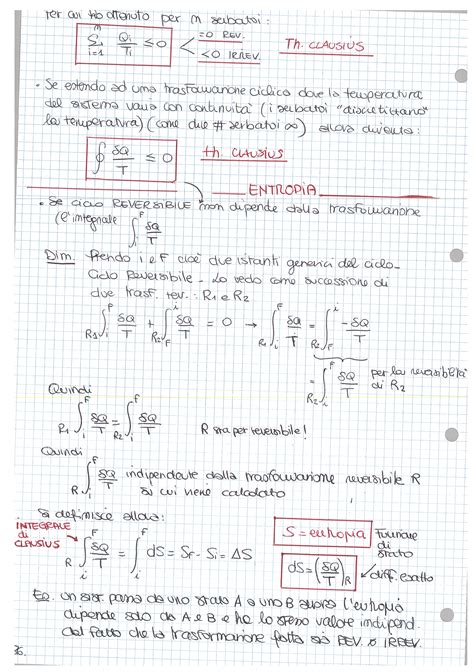 Per cui ho ottenuto per m serbatoi:
m Σ i=1 Qi/Ti ≤ 0 < =0 REV. <0 IRREV. Th. CLAUSIUS
• Se estendo ad una trasformazione ciclica dove la temperatura
del sistema varia con continuità (i serbatoi "discretizzano"
la temperatura) (come dire # serbatoi ∞) allora diventa:
∮ δQ/T ≤ 0 th. CLAUSIUS
ENTROPIA
• Se ciclo REVERSIBILE non dipende dalla trasformazione
(l'integrale ∫ᵢᶠ δQ/T
Dim. Prendo i e F cioè due istanti generici del ciclo-
Ciclo Reversibile - Lo vedo come successione di
due trasf. rev.: R1 e R2
R1∫ᵢᶠ δQ/T + R2∫_Fⁱ δQ/T = 0 → R1∫ᵢᶠ δQ/T = R2∫_Fⁱ -δQ/T
= R2∫ᵢᶠ δQ/T per la reversibilità di R2
Quindi
R1∫ᵢᶠ δQ/T = R2∫ᵢᶠ δQ/T R sta per reversibile!
Quindi
R∫ᵢᶠ δQ/T indipendente dalla trasformazione reversibile R
su cui viene calcolato
Si definisce allora:
INTEGRALE di CLAUSIUS R∫ᵢᶠ δQ/T = ∫ᵢᶠ dS = SF - Si = ΔS
S = entropia Funzione di stato
dS = (δQ/T)R diff. esatto
Se un sist. passa da uno stato A a uno B allora l'entropia
dipende solo da A e B e ha lo stesso valore indipend.
dal fatto che la trasformazione fatta sia REV. o IRREV.
36.